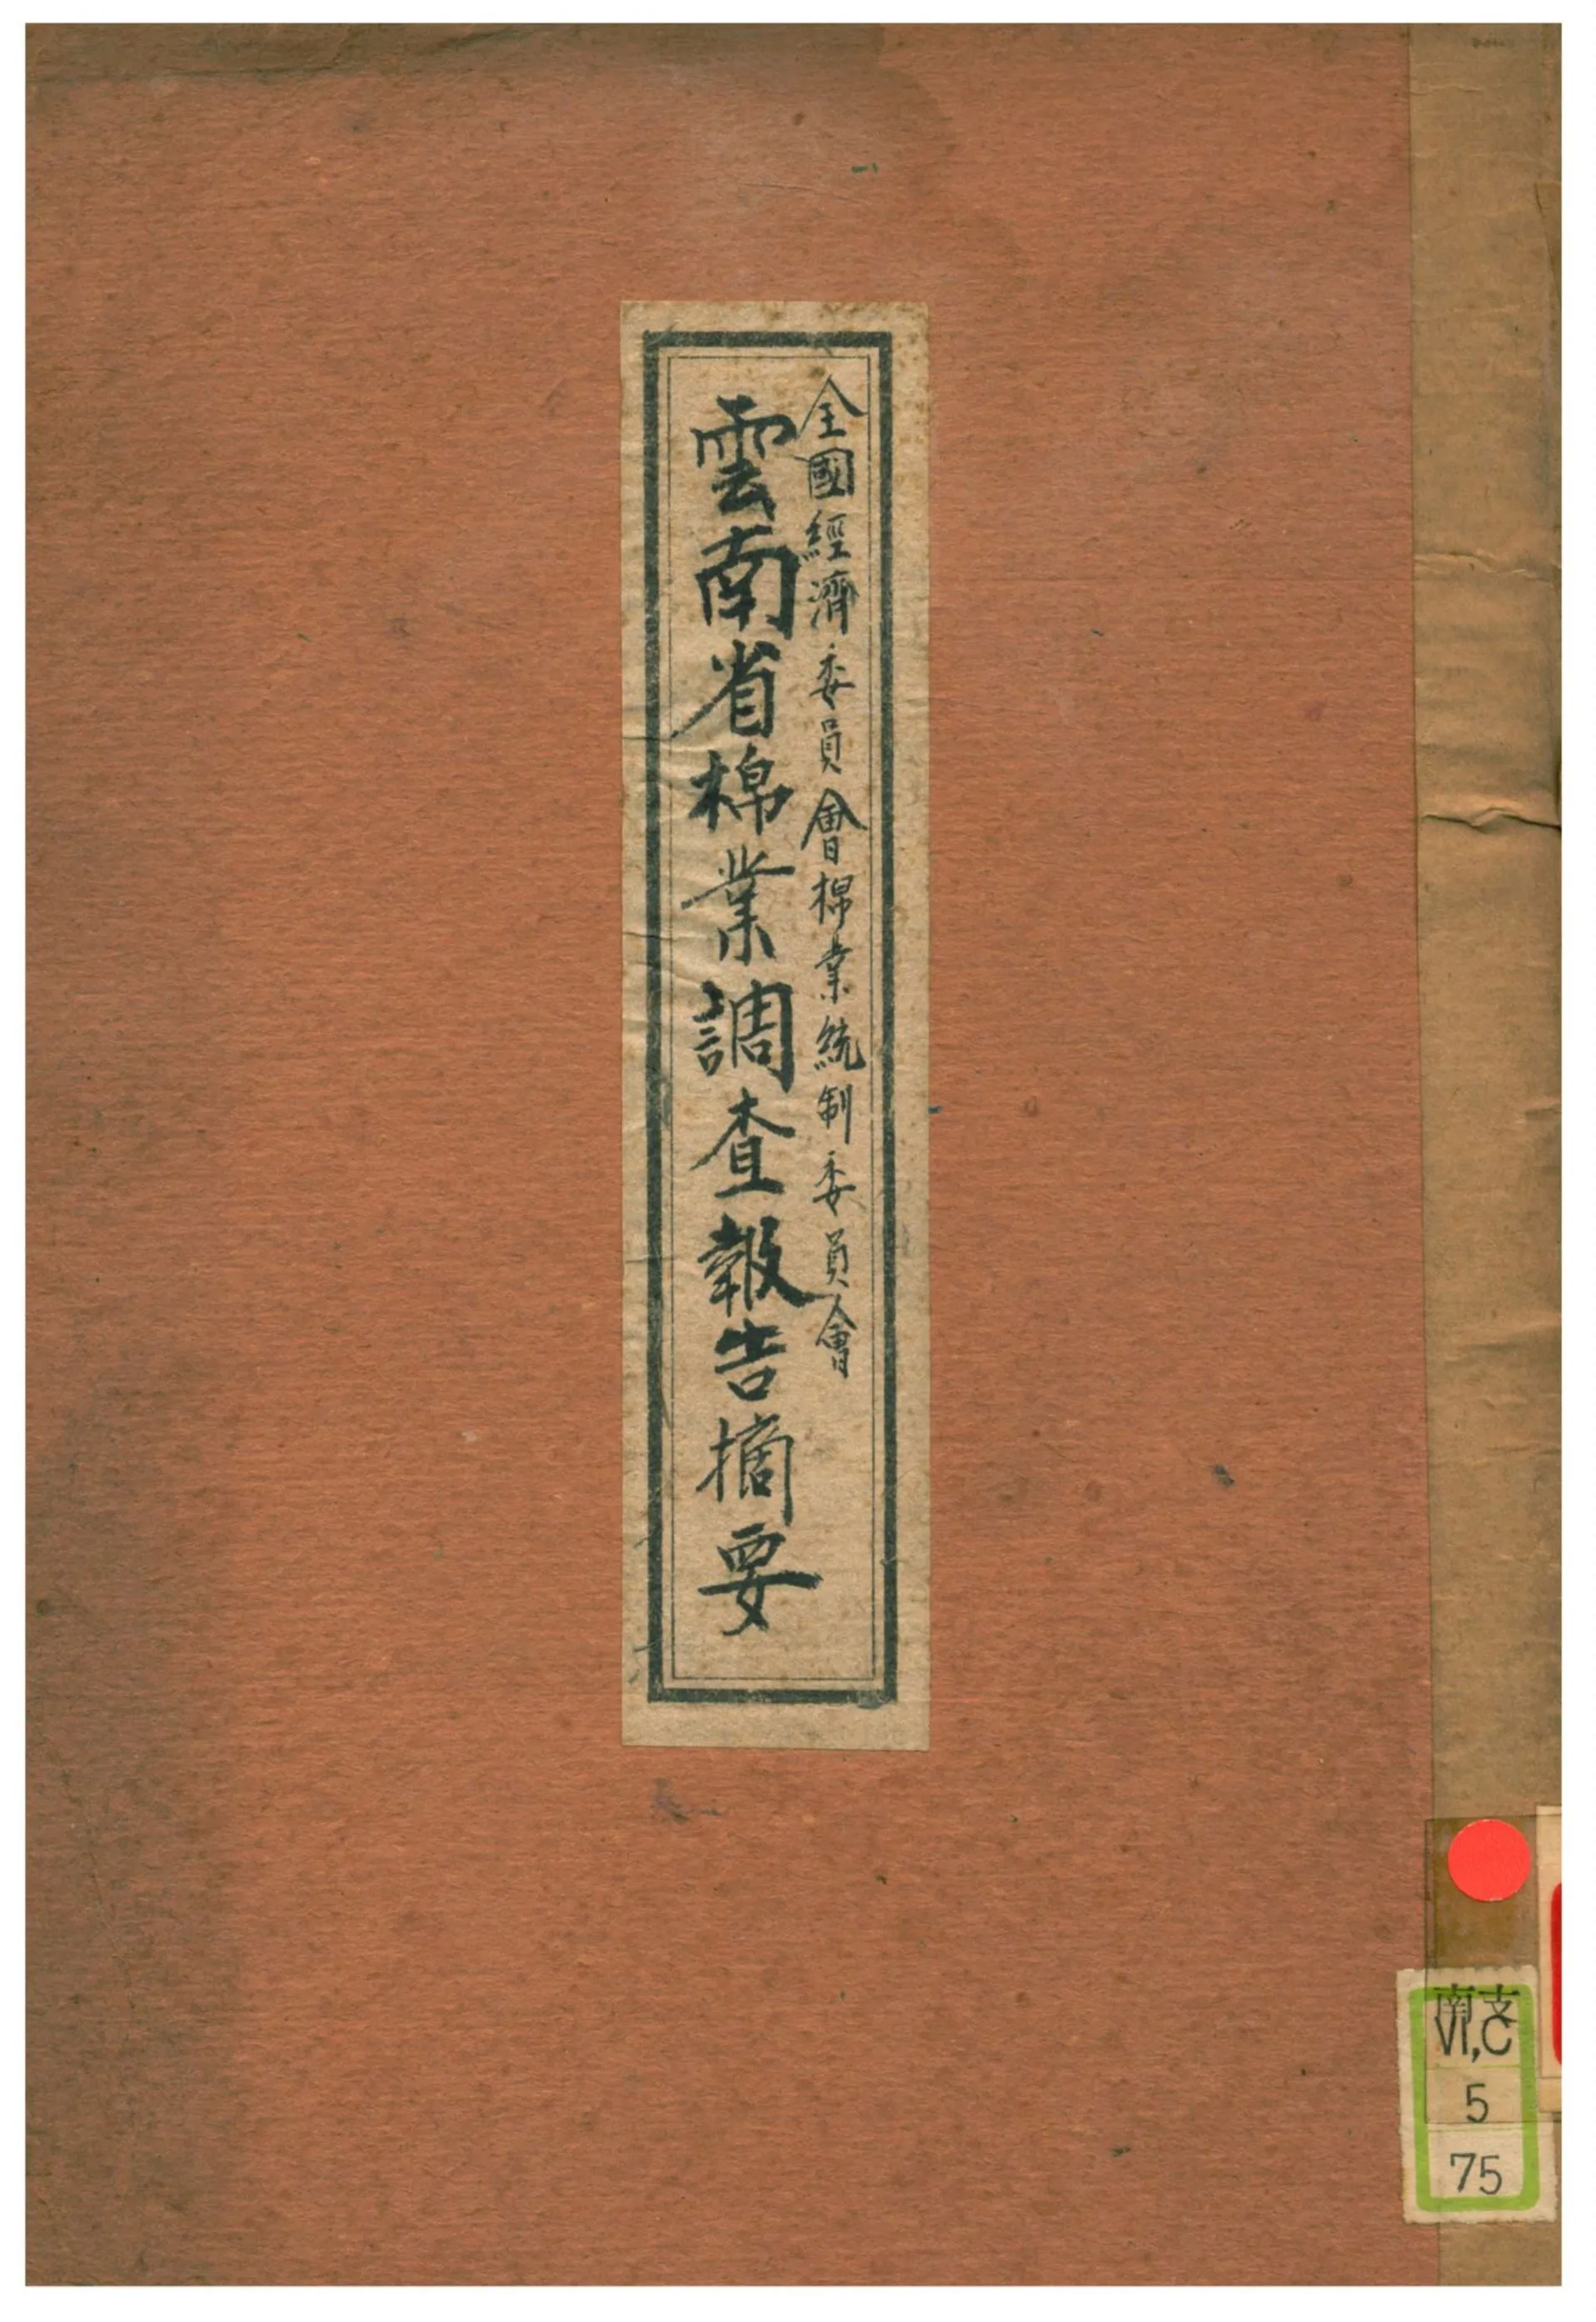 全國經濟委員會棉業統制委員會
雲南省棉業調查報告摘要
南支
VI,C
5
75